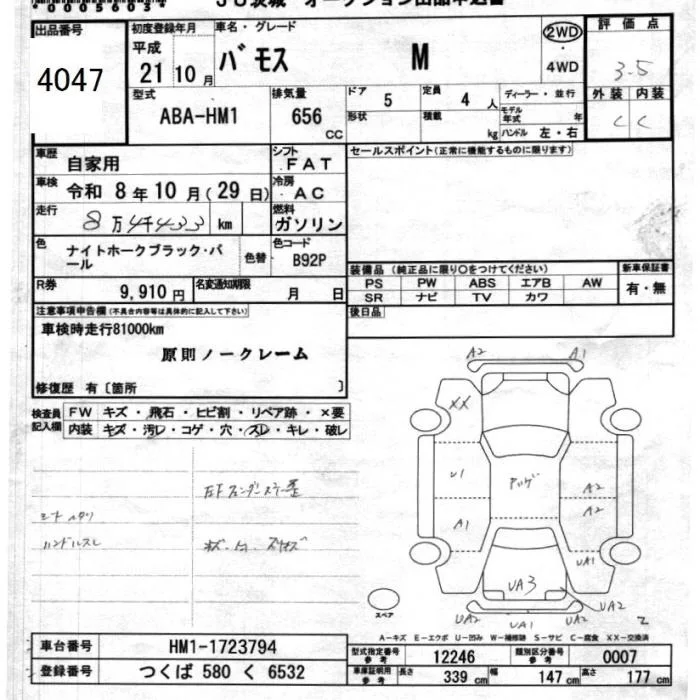 *00050637
JU茨城 オークション出品申込書
出品番号
4047
初度登録年月
平成 21年 10月
車名・グレード
バモス M
2WD
・
4WD
評価点
3.5
外装 内装
C C
型式
ABA-HM1
排気量
656 CC
ドア 5
形状
定員 4 人
積載 kg
ディーラー・並行
モデル年式 年
ハンドル 左・右
車歴
自家用
シフト
FAT
車検
令和 8年 10月 (29日)
冷房
AC
走行
8万4千433 km
燃料
ガソリン
色
ナイトホークブラック・パール
色替
色コード
B92P
R券
9,910円
名変通知期限
月 日
セールスポイント(正常に機能するものに限ります)
装備品 (純正品に限り○をつけてください)
PS PW ABS エアB AW
SR ナビ TV カワ
新車保証書
有・無
後日品
注意事項申告欄(不具合内容等は具体的に記入して下さい)
車検時走行81000km
原則ノークレーム
修復歴 有〔箇所 〕
検査員記入欄
FW キズ・飛石・ヒビ割・リペア跡・×要
内装 キズ・汚レ・コゲ・穴・スレ・キレ・破レ
シートヘタリ
ハンドルスレ
A2 A1
XX
U1
A1
A2
A2
UA1
UA3
UA2
UA1
UA2
UA2
スペア
A－キズ E－エクボ U－凹み W－補修跡 S－サビ C－腐食 XX－交換済
車台番号
HM1-1723794
登録番号
つくば 580 く 6532
型式指定番号 参考
12246
類別区分番号 参考
0007
車庫証明用 参考
長さ 339 cm 幅 147 cm 高さ 177 cm